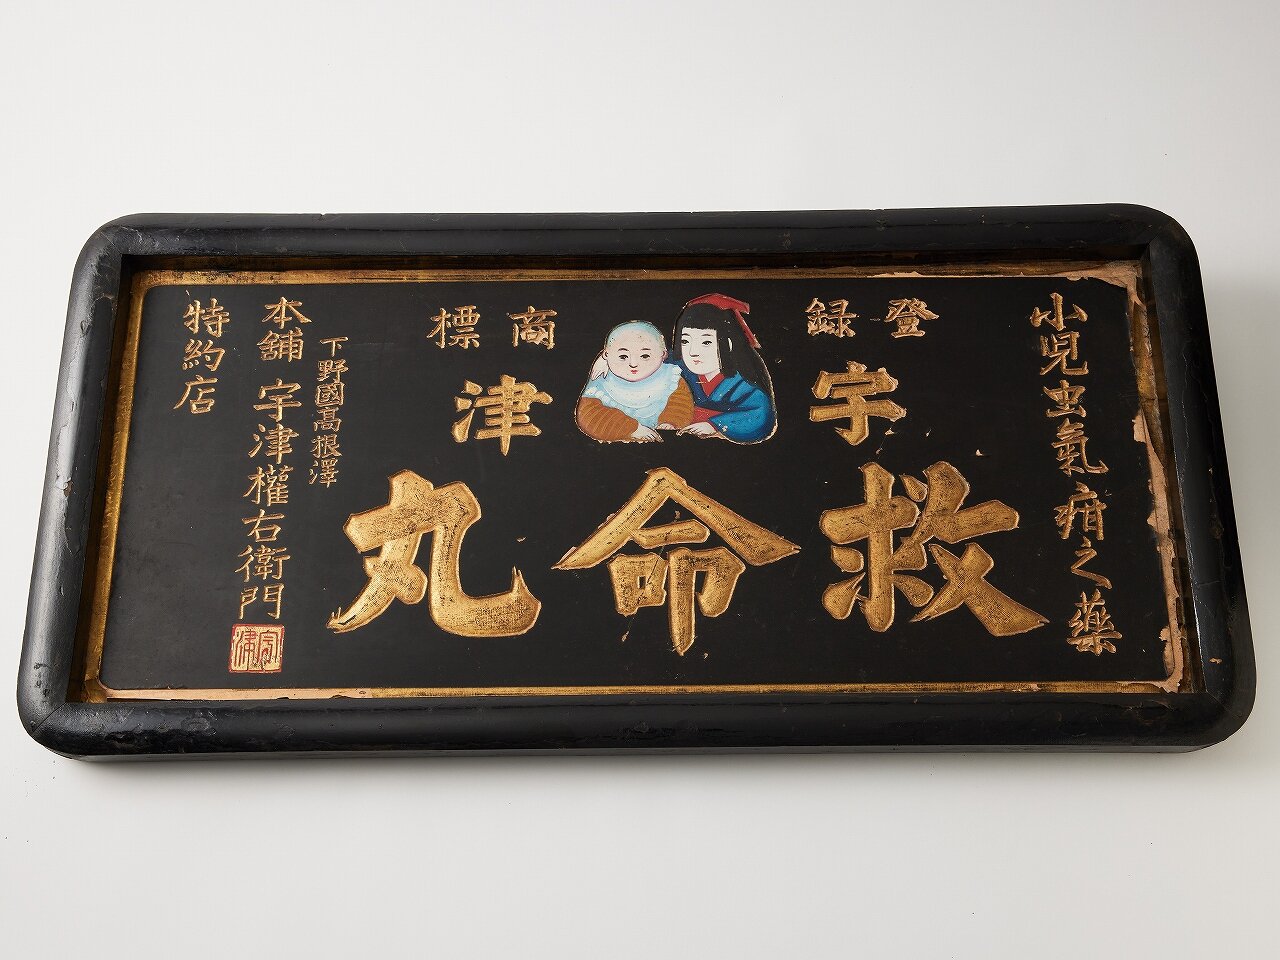 小兒虫氣疳之藥
登録
商標
宇津
救命丸
下野國高根澤
本舖 宇津權右衛門
宇津
特約店